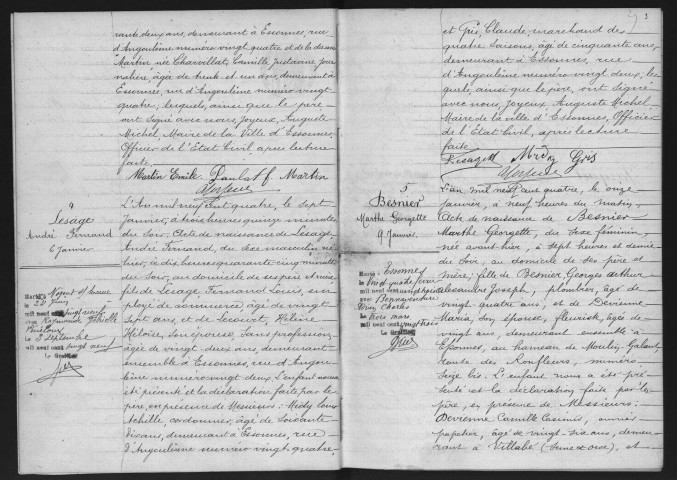 rante deux ans, demeurant à Essonnes, rue
d'Angoulême numéro vingt quatre et de la dame
Martin née Charvillat, Camille, Justine, jour-
nalière, âgée de trente et un ans, demeurant à
Essonnes, rue d'Angoulême numéro vingt
quatre; lesquels, ainsi que le père
ont signé avec nous, Joyeux, Auguste
Michel, Maire de la Ville d'Essonnes,
Officier de l'Etat Civil, après lecture
faite.
Martin Emile F. Martin
4
Lesage
André Fernand
6 Janvier
L'An mil neuf cent quatre, le sept
Janvier, à trois heures quinze minutes
du soir. Acte de naissance de Lesage,
André Fernand, du sexe masculin, né
hier, à dix heures quarante cinq minutes
du soir, au domicile de ses père et mère;
fils de Lesage Fernand Louis, em-
ployé de commerce, âgé de vingt
sept ans, et de Lecourt, Hélène
Héloïse, son épouse, sans profession,
âgée de vingt deux ans, demeurant
ensemble à Essonnes, rue d'Angou-
lême numéro vingt deux. L'enfant nous a
été présenté et la déclaration faite par le
père, en présence de Messieurs: Louis
Achille, cordonnier, âgé de soixante
dix ans, demeurant à Essonnes, rue
d'Angoulême numéro vingt quatre,
Marié à Nogent s/ Marne
le 29 juin
mil neuf cent vingt neuf
avec Raymonde
le 3 septembre
mil neuf cent vingt neuf
Le Greffier
3
et Gris, Claude, marchand des
quatre saisons, âgé de cinquante ans,
demeurant à Essonnes, rue
d'Angoulême numéro vingt deux, les-
quels, ainsi que le père, ont signé
avec nous, Joyeux, Auguste Michel,
Maire de la ville d'Essonnes, Officier
de l'Etat Civil, après lecture
faite.
Gris
5
Besnier
Marthe Georgette
9 Janvier
L'an mil neuf cent quatre, le onze
janvier, à neuf heures du matin,
Acte de naissance de Besnier
Marthe Georgette, du sexe féminin,
née avant-hier, à sept heures et demie
du soir, au domicile de ses père et
mère; fille de Besnier, Georges Arthur
Joseph, plombier, âgé de
vingt quatre ans, et de Devienne
Maria, son épouse, fleuriste, âgée de
vingt ans, demeurant ensemble à
Essonnes, au hameau de Moulin-Galant
route des Ronfleurs, numéro
seize bis. L'enfant nous a été pré-
senté et la déclaration faite par le
père, en présence de Messieurs:
Devienne Camille Casimir, ouvrier
papetier, âgé de vingt-six ans, demeu-
rant à Villabé (Seine et Oise), et
Marié à Essonnes
le vingt quatre
mil neuf cent
avec Bonnaventure
Charles
le trois mars
mil neuf cent vingt trois
Le Greffier